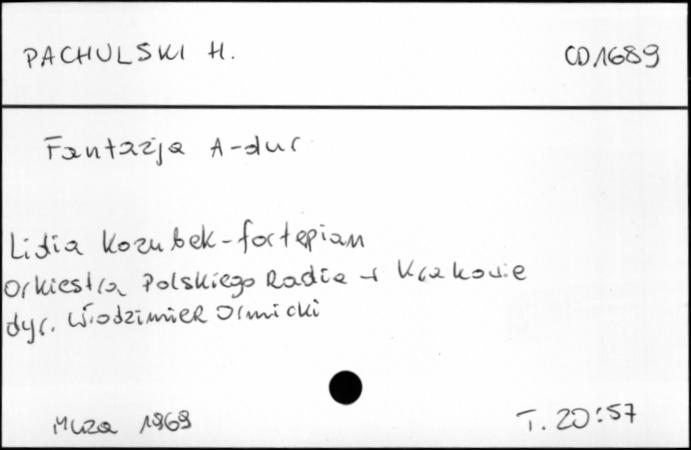 PACHULSKI H. CD1689
Fantazja A-dur
Lidia Kozubek - fortepian
Orkiestra Polskiego Radia w Krakowie
dyr. Włodzimierz Ormicki
Muza 1969 T. 20:57